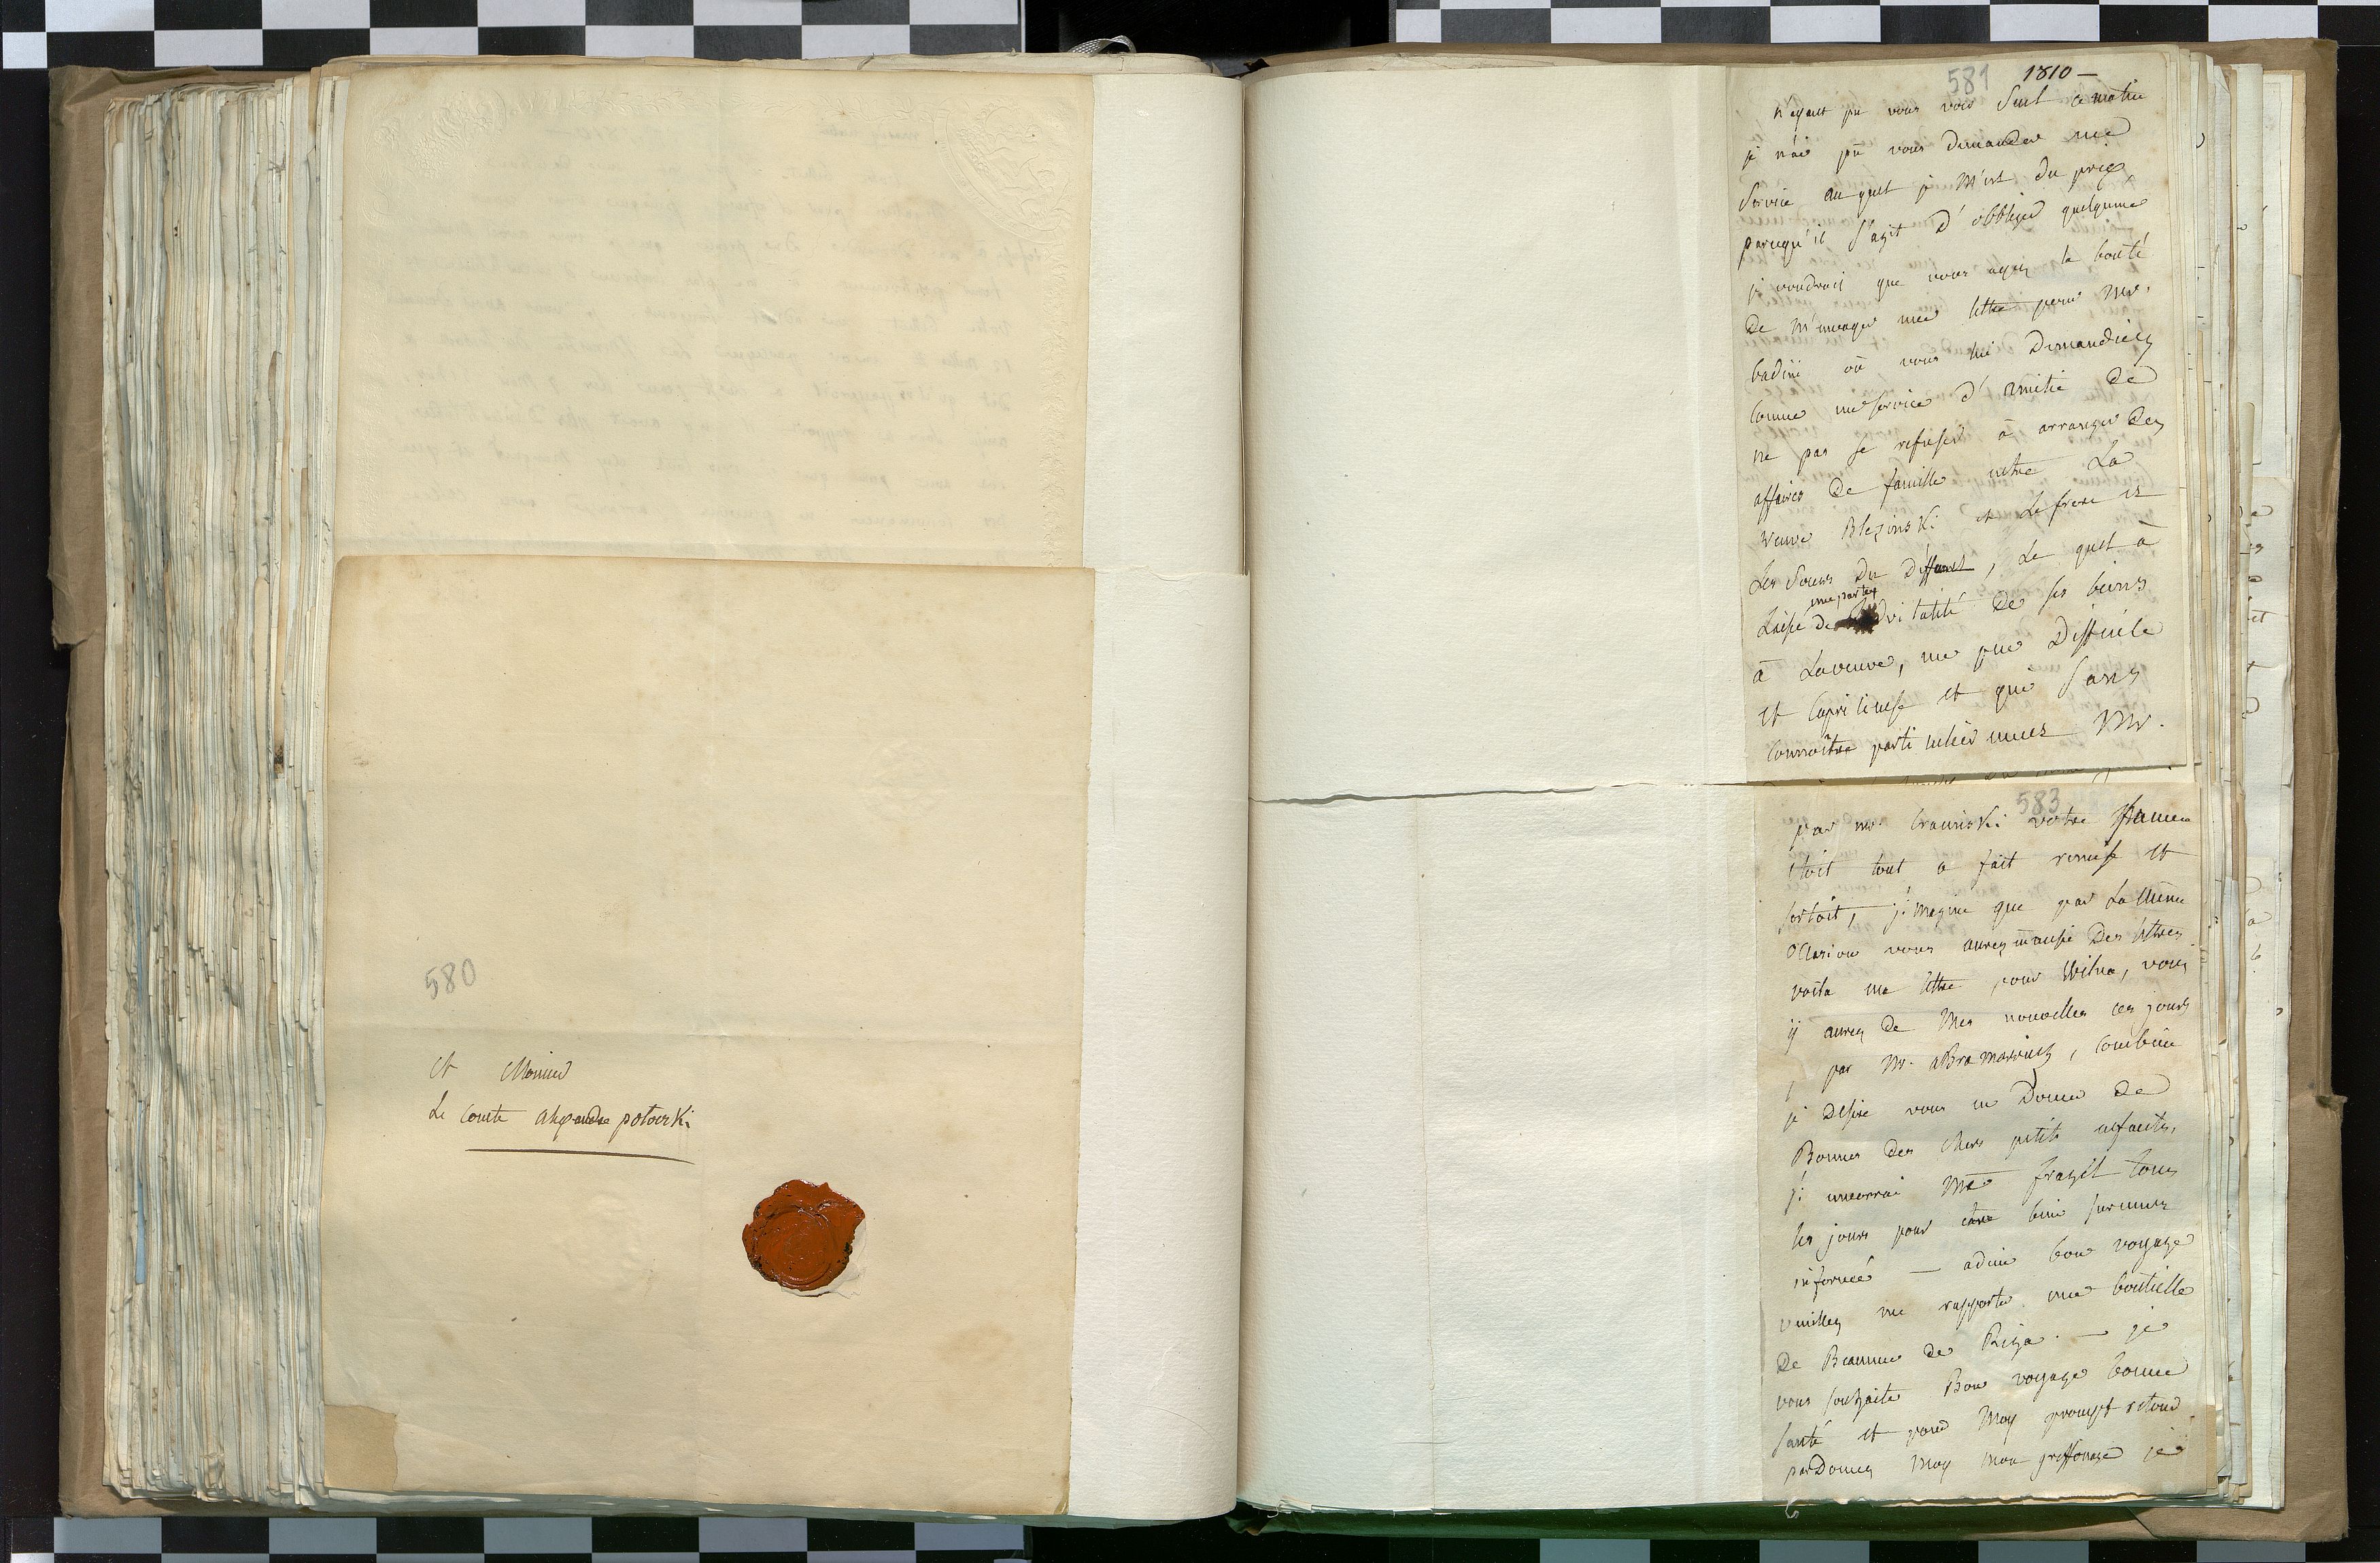 580
et Monieur
Le comte alexandre potocki
581 1810 —
n'ayant pu vous voir Seul ce matin
je n'ai pû vous demander une
Service au quel je m'est du prix,
parcequ'il s'agit d'obbliger quelqune
je voudrois que vous ayez la bonté
De m'envoyer une lettre pour Mr.
badini où vous lui Demandiez
comme une service d'amitié de
ne pas se refuser à arranger Des
affaires De famille entre La
veuve Blezinski et Le frere et
Les Soeurs Du Deffunt, Le quel à
une partie
Laissé de De ses biens
à Laveuve, une peu Difficile
et Capricieuse et qui Sans
connoître particulièrement Mr.
583
par mr. votre
étoit tout a fait remise et
sortoit, j'imagine que par La même
occasion vous aurez aussi Des lettres
voila une lettre pour Wilna, vous
ÿ aurez de Mes nouvelles ces jours
par Mr. aBramowicz, combien
je Desire vous en Donner de
Bonnes Des chers petits enfants,
j'i envorrai tous
les jours pour être bien surement
informé — adieu bon voyage
veuillez me rapporter une bouteille
De Beaume de Riga. — je
vous souhaite Bon voyage bonne
santé et pour Moy prompt retour
parDonnez Moy mon griffonage je